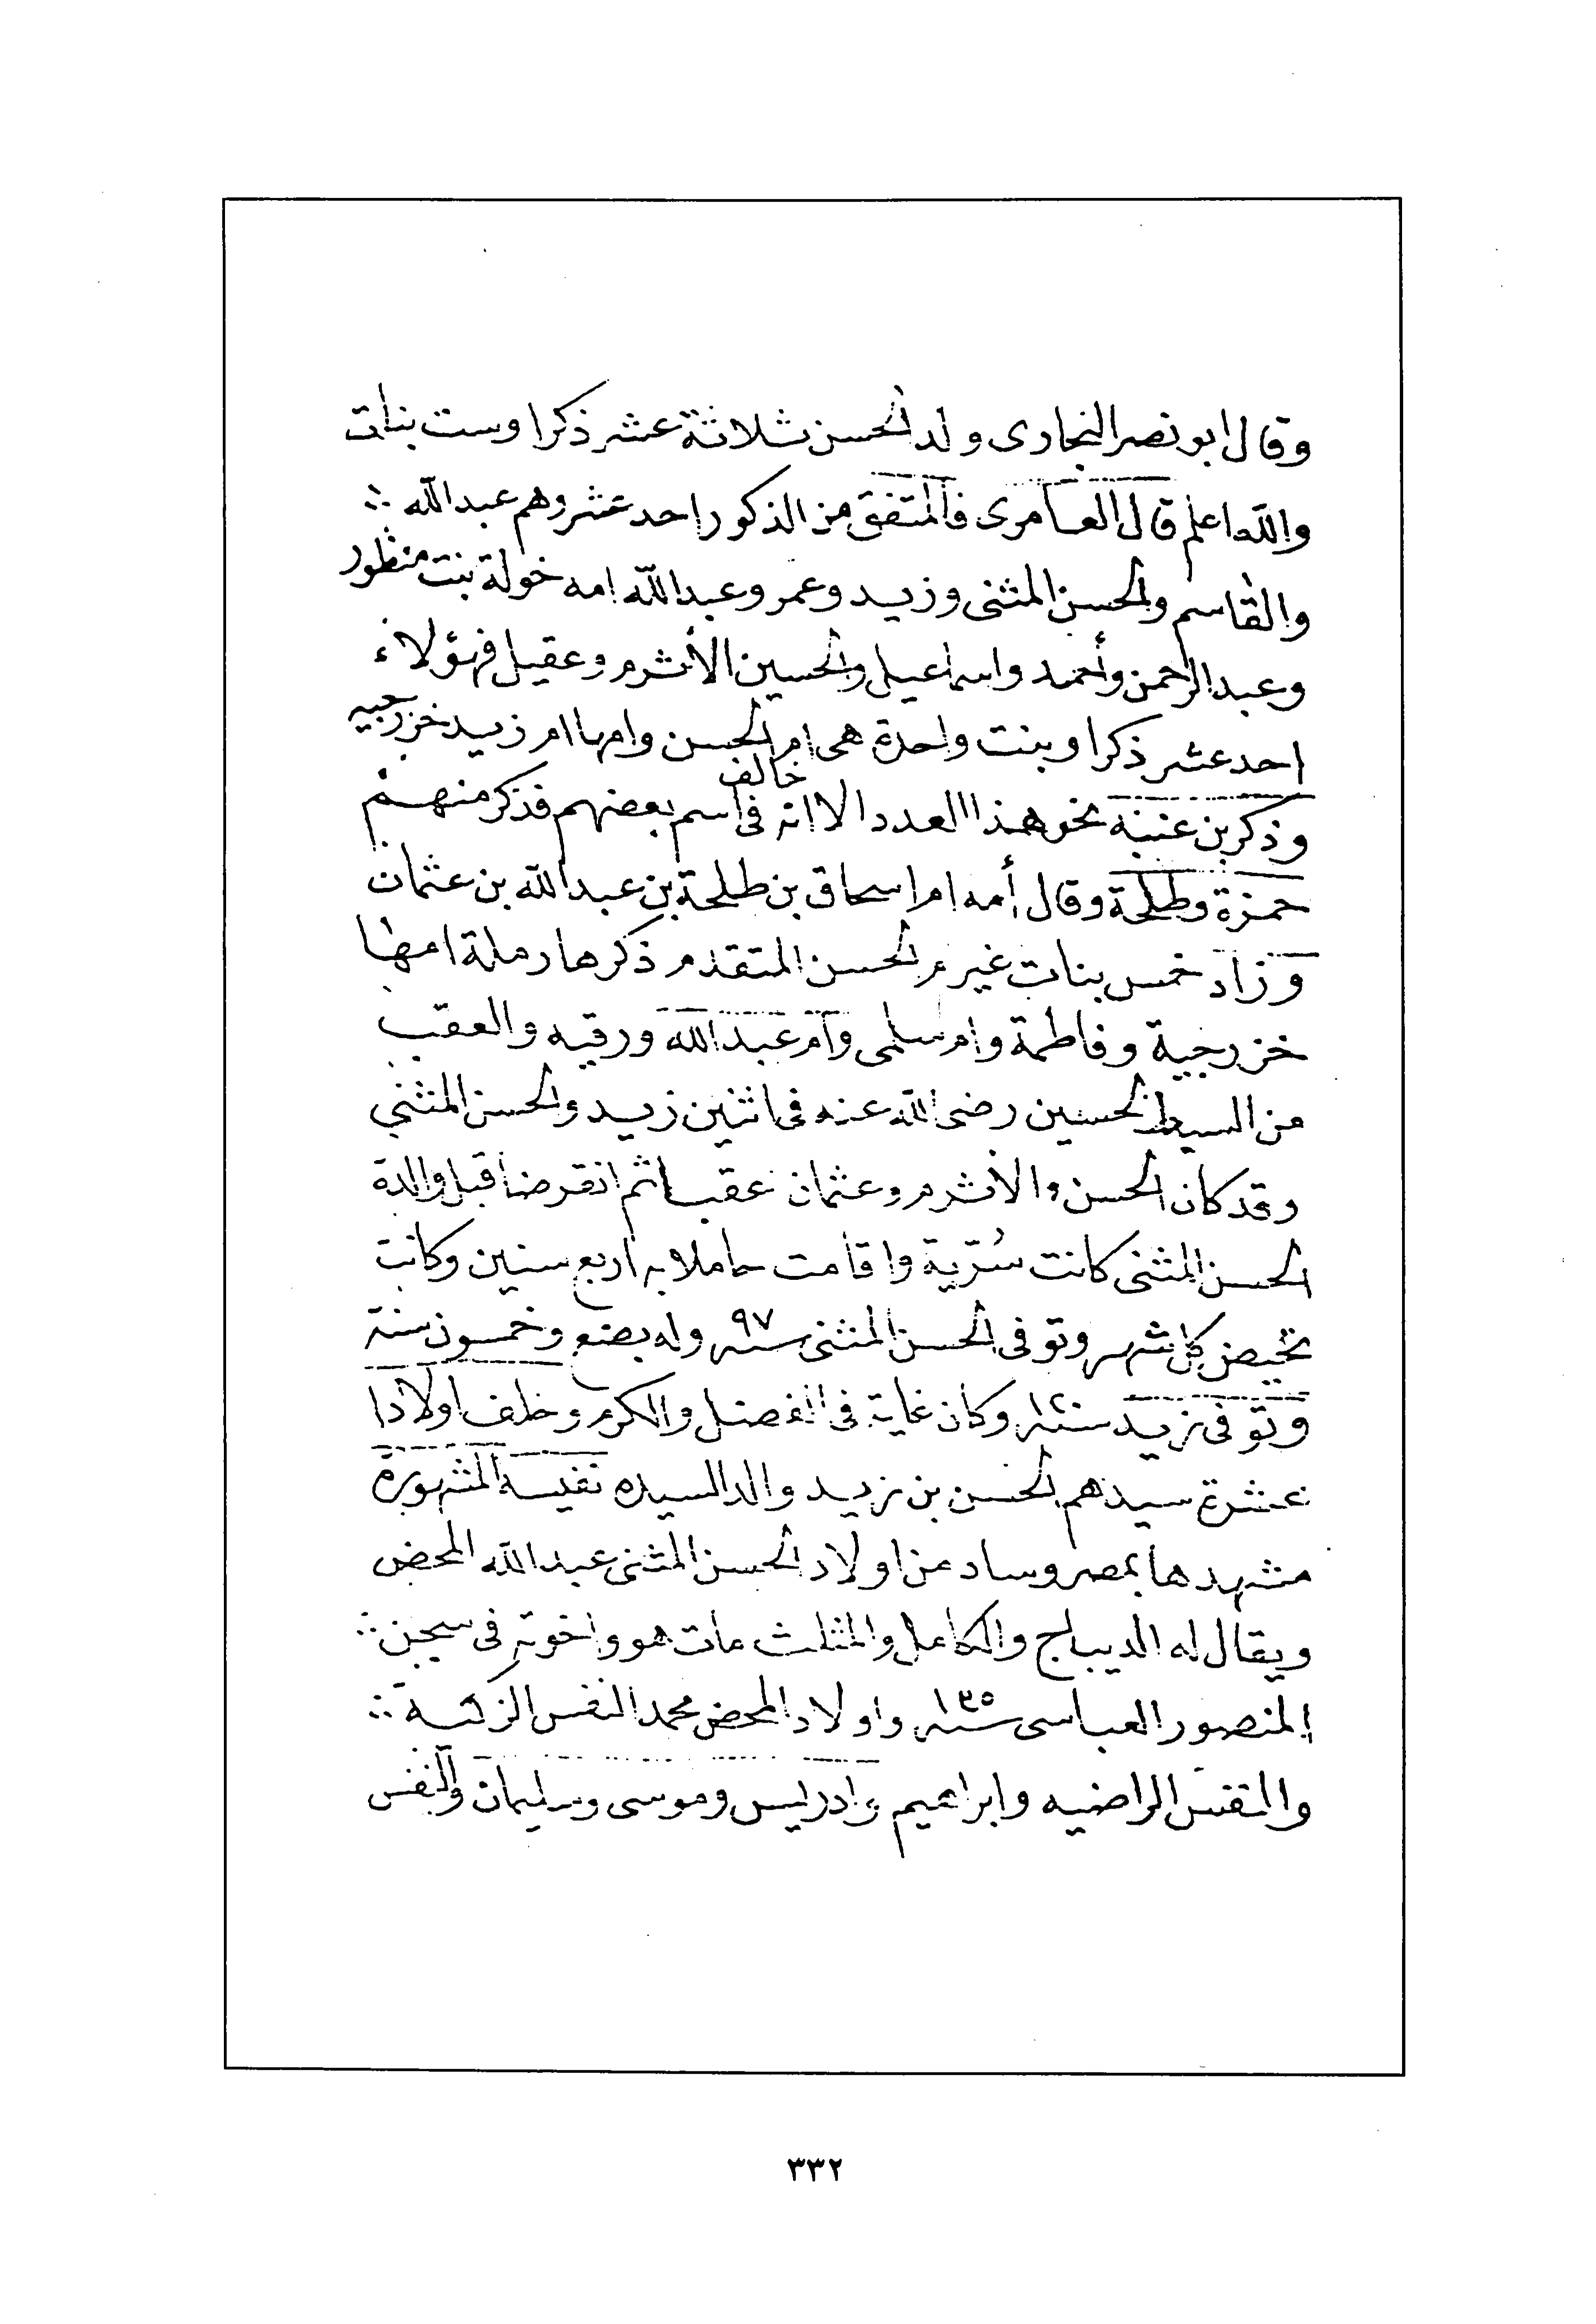 وقال ابو نصر البخارى ولد الحسن ثلاثة عشر ذكرا وست بنات
والله اعلم قال العامرى فالمتفق من الذكور احد عشر وهم عبدالله
والقاسم والحسن المثنى وزيد وعمر وعبدالله امه خولة بنت منظور
وعبد الرحمن وأحمد واسماعيل والحسين الأثرم وعقيل فهؤلاء
احد عشر ذكرا وبنت واحدة هى ام الحسن وامها ام زيد خزرجيه
وذكر بن عنبه نحو هذا العدد الا انه خالف فى اسم بعضهم فذكر منهم
حمزة وطلحة وقال أمه ام اسحاق بن طلحة بن عبدالله بن عثمان
وزاد خمس بنات غير م الحسن المتقدم ذكرها رملة امها
خزرجية وفاطمة وام سلمى وام عبدالله ورقيه والعقب
من السبط الحسين رضى الله عنه فى اثنين زيد والحسن المثنى
وقد كان الحسن والاثرم وعثمان عقبا ثم انقرضا قبل والدة
الحسن المثنى كانت سُرّية واقامت حاملا به اربع سنين وكانت
تحيض كل شهر وتوفى الحسن المثنى سنه ٩٧ وله بضع وخمسون سنة
وتوفى زيد سنه ١٢٠ وكان غاية فى الفضل والكرم وخلف اولادا
عشرة سيدهم الحسن بن زيد والد السيده نفيسة المشهورة
مشهدها بمصر وساد من اولاد الحسن المثنى عبدالله المحض
ويقال له الديباج والكامل والمثلث مات هو واخوته فى سجن
المنصور العباسى سنه ١٣٥ واولاد المحض محمد النفس الزكية
والنفس الراضيه وابراهيم وادريس وموسى وسليمان والنفس
٣٣٢